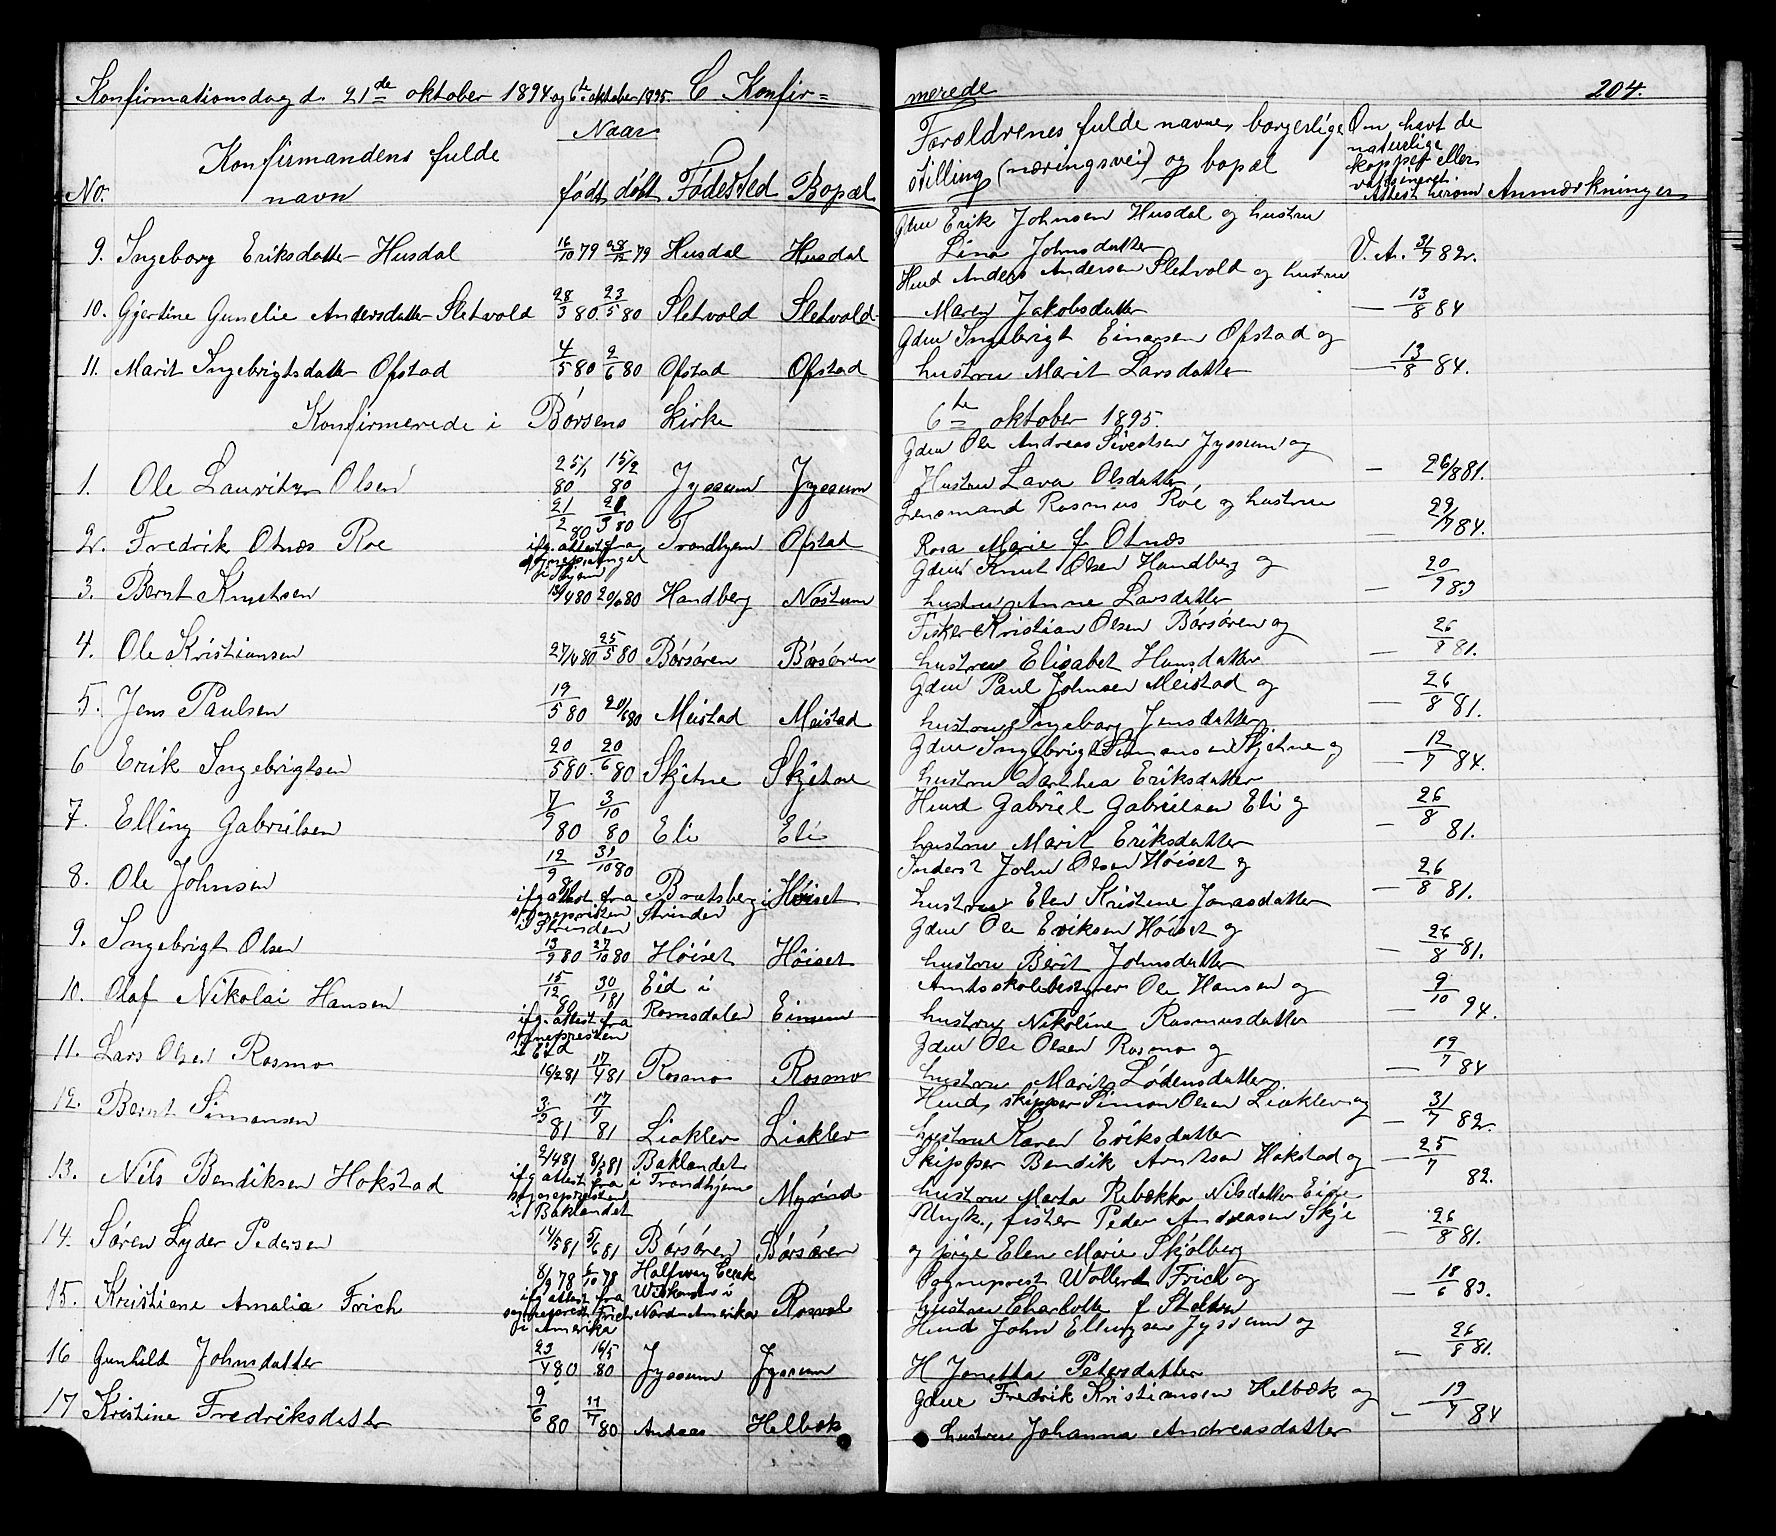 Konfirmationsdag d. 21de oktober 1894 og 6te oktober 1895. C Konfir=
merede
204.
No.
Konfirmandens fulde
navn
Naar
født døbt Fødested Bopæl
Forældrenes fulde navne, borgerlige
stilling (næringsvei) og bopæl
Om havt de
naturlige
kopper eller
vaksineret.
Attest herom
Anmærkninger
9. Ingeborg Eriksdatter Husdal 16/10 79 28/12 79 Husdal Husdal
Gdm Erik Johnsen Husdal og hustru
Lina Johnsdatter V. A. 31/7 82.
10. Gjertine Gunelie Andersdatter Sletvold 28/3 80. 23/5 80 Sletvold Sletvold
Hmd Anders Andersen Sletvold og hustru
Maren Jakobsdatter — 13/8 84
11. Marit Ingebrigtsdatter Ofstad 4/5 80 2/6 80 Ofstad Ofstad
Gdm Ingebrigt Einarsen Ofstad og
hustru Marit Larsdatter — 13/8 84.
Konfirmerede i Børsens Kirke
6te oktober 1895.
1. Ole Lauritz Olsen 25/1 80 15/2 80 Jyssum Jyssum
Gdm Ole Andreas Sivertsen Jyssum og
Hustru Lava Olsdatter — 26/8 81.
2. Fredrik Otnæs Roe 21/2 80 21/3 80 Trondhjem Ofstad
ifg. attest fra
Lensmand Rasmus Roe og hustru
Rosa Marie f. Otnæs — 29/7 84.
3. Bernt Knutsen 18/4 80 20/6 80 Handberg Nøstum
Gdm Knut Olsen Handberg og
hustru Anne Larsdatter — 20/9 83
4. Ole Kristiansen 27/4 80 25/5 80 Børsøren Børsøren
Fisker Kristian Olsen Børsøren og
hustru Elisabet Hansdatter — 26/8 81.
5. Jens Paulsen 19/5 80 20/6 80 Meistad Meistad
Gdm Paul Johnsen Meistad og
hustru Ingeborg Jensdatter — 26/8 81.
6 Erik Ingebrigtsen 20/5 80. 20/6 80 Skjetne Skjetne
Gdm Ingebrigt Simonsen Skjetne og
hustru Dorthea Eriksdatter — 12/7 84.
7. Elling Gabrielsen 7/9 80 3/10 80 Eli Eli
Hmd Gabriel Gabrielsen Eli og
hustru Marit Eriksdatter — 26/8 81.
8. Ole Johnsen 12/9 80 31/10 80 Bratsberg i Høiset
ifg attest fra Strinden
sognepresten
i Strinden
Inderst John Olsen Høiset og
hustru Elen Kristine Jonasdatter — 26/8 81.
9. Ingebrigt Olsen 13/9 80 27/10 80 Høiset Høiset
Gdm Ole Eriksen Høiset og
hustru Berit Johnsdatter — 26/8 81.
10. Olaf Nikolai Hansen 15/12 80 30/1 81 Eid i Romsdalen Einum
ifg. attest fra
sognepresten
i Eid
Amtsskolebestyrer Ole Hansen og
hustru Nikoline Rasmusdatter — 9/10 94.
11. Lars Olsen Rosmo 16/2 81 17/4 81 Rosmo Rosmo
Gdm Ole Olsen Rosmo og
hustru Marit Lødensdatter. — 19/7 84
12. Bernt Simonsen 3/3 81 17/4 81 Liaklev Liaklev
Hmd, skipper Simon Olsen Liaklev og
hustru Karen Eriksdatter — 31/7 82.
13. Nils Bendiksen Hokstad 2/4 81 8/5 81 Baklandet
ifg attest fra i Trondhjem
sognepresten Myrind
i Baklandet
Skipper Bendik Arntsen Hokstad og
hustru Marta Rebekka Nilsdatter — 25/7 82.
14. Søren Lyder Pedersen 14/5 81 5/6 81 Børsøren Børsøren
Ungk., fisker Peder Andreasen Skje
og pige Elen Marie Skjølberg — 26/8 81.
15. Kristiane Amalia Frich 8/9 78 6/10 78 Halfway Creek
ifg attest fra i
sogneprest Frich Nord-Amerika Rosvol
i Amerika
Sogneprest Wollert Frich og
hustru Charlotte f — 18/6 83.
16 Gunhild Johnsdatter 23/4 80 16/5 80 Jyssum Jyssum
Hmd John Ellingsen Jyssum og
H Jonetta Petersdatter — 26/8 81.
17 Kristine Fredriksdatter 9/6 80 11/7 80 Andaas Helbæk
Gdm Fredrik Kristiansen Helbæk og
hustru Johanna Andreasdatter — 19/7 84